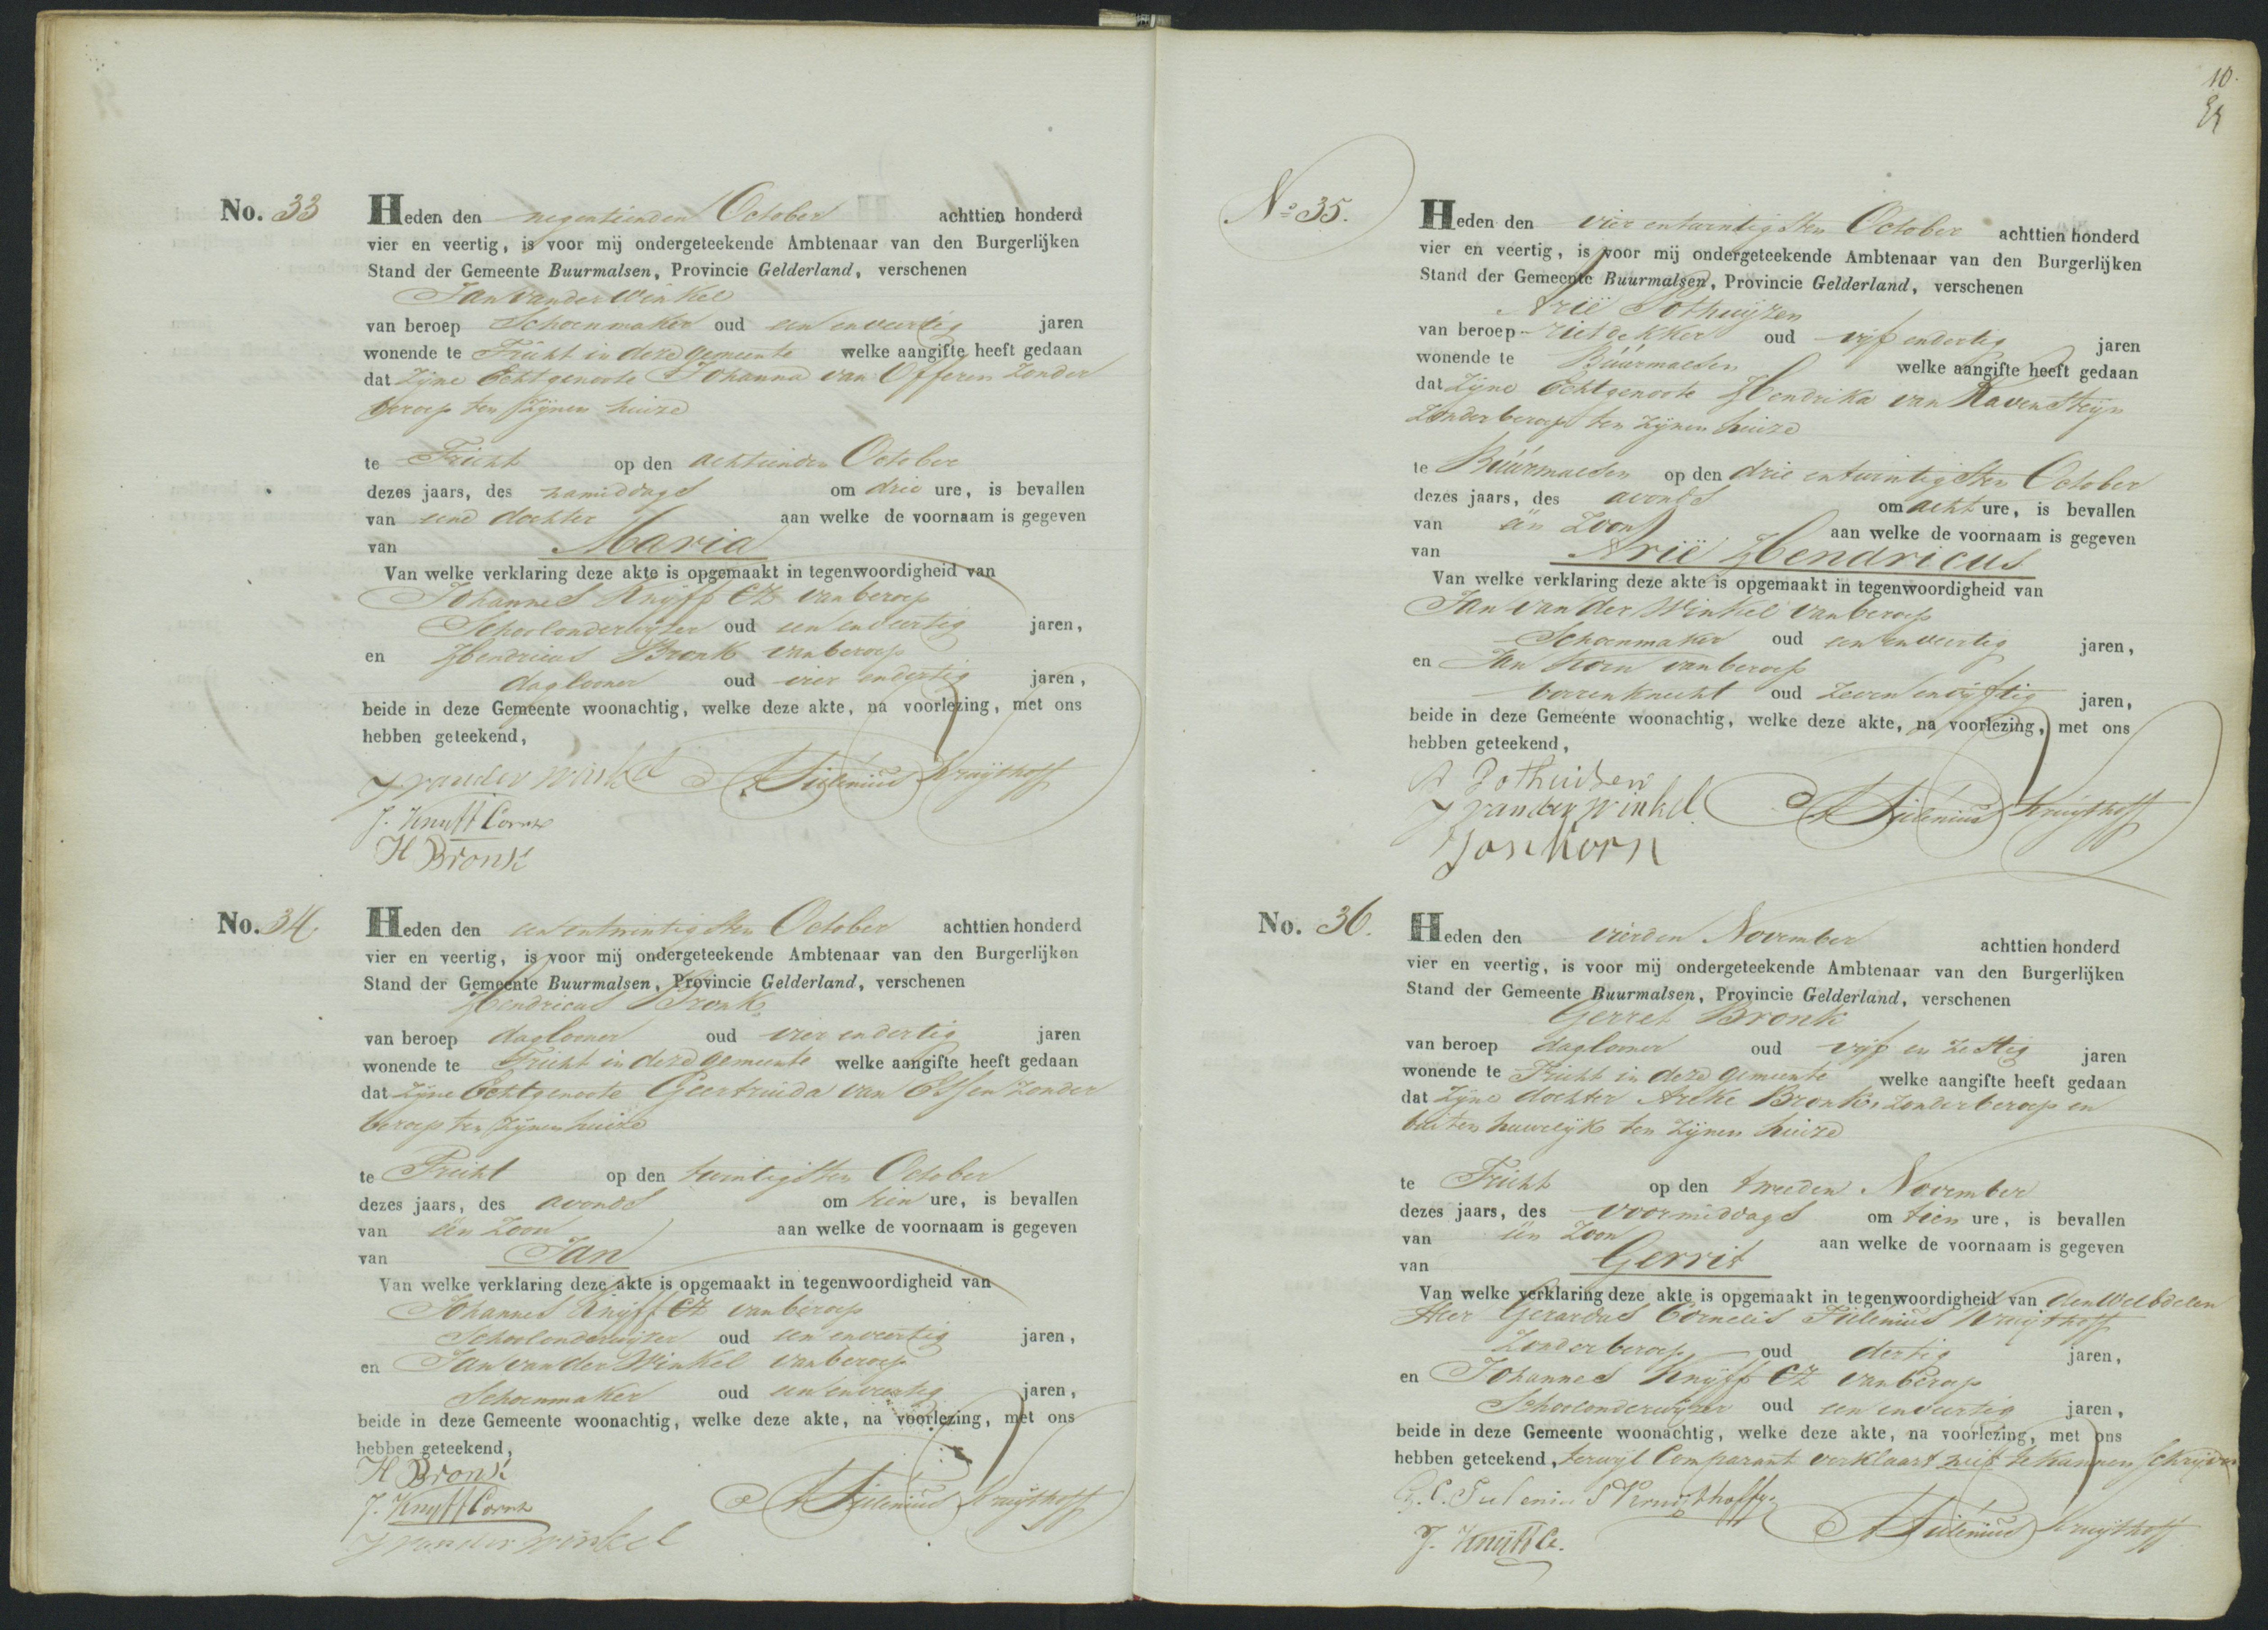 No. 33
Heden den negentienden October achttien honderd
vier en veertig, is voor mij ondergeteekende Ambtenaar van den Burgerlijken
Stand der Gemeente Buurmalsen, Provincie Gelderland, verschenen
Jan van der Winkel
van beroep Schoenmaker oud een en veertig jaren
wonende te Tricht in deze gemeente welke aangifte heeft gedaan
dat Zijne Echtgenoote Johanna van Offeren Zonder
beroep ten Zijnen huize
te Tricht op den achtienden October
dezes jaars, des namiddags om drie ure, is bevallen
van eene dochter aan welke de voornaam is gegeven
van Maria
Van welke verklaring deze akte is opgemaakt in tegenwoordigheid van
Johannes Knijff CZ van beroep
Schoolonderwijzer oud een en veertig jaren,
en Hendricus Bronk van beroep
daglooner oud vier en dertig jaren,
beide in deze Gemeente woonachtig, welke deze akte, na voorlezing, met ons
hebben geteekend,
J van der winkel Tulenius Kruijthoff
J. Knijff Cornz
H Bronk
No. 34
Heden den een entwintigsten October achttien honderd
vier en veertig, is voor mij ondergeteekende Ambtenaar van den Burgerlijken
Stand der Gemeente Buurmalsen, Provincie Gelderland, verschenen
Hendricus Bronk
van beroep daglooner oud vier en dertig jaren
wonende te Tricht in deze gemeente welke aangifte heeft gedaan
dat Zijne Echtgenoote Geertruida van Essen Zonder
beroep ten Zijnen huize
te Tricht op den twintigsten October
dezes jaars, des avonds om tien ure, is bevallen
van een Zoon aan welke de voornaam is gegeven
van Jan
Van welke verklaring deze akte is opgemaakt in tegenwoordigheid van
Johannes Knijff CZ van beroep
Schoolonderwijzer oud een en veertig jaren,
en Jan van der Winkel van beroep
Schoenmaker oud een en veertig jaren,
beide in deze Gemeente woonachtig, welke deze akte, na voorlezing, met ons
hebben geteekend,
H Bronk
J. Knijff Cornz Tulenius Kruijthoff
J van der winkel
10.
No 35.
Heden den vier entwintigsten October achttien honderd
vier en veertig, is voor mij ondergeteekende Ambtenaar van den Burgerlijken
Stand der Gemeente Buurmalsen, Provincie Gelderland, verschenen
Arië Pothuijzen
van beroep rietdekker oud vijf endertig jaren
wonende te Buúrmalsen welke aangifte heeft gedaan
dat Zijne Echtgenoote Hendrika van Ravensteijn
Zonder beroep ten Zijnen huize
te Buúrmalsen op den drie entwintigsten October
dezes jaars, des avonds om acht ure, is bevallen
van een Zoon aan welke de voornaam is gegeven
van Arië Hendricus
Van welke verklaring deze akte is opgemaakt in tegenwoordigheid van
Jan van der Winkel van beroep
Schoenmaker oud een en veertig jaren,
en Jan Horn van beroep
boerenknecht oud Zeven en vijftig jaren,
beide in deze Gemeente woonachtig, welke deze akte, na voorlezing, met ons
hebben geteekend,
A Pothuisen
J van der winkel Tulenius Kruijthoff
Jan Horn
No. 36.
Heden den vierden November achttien honderd
vier en veertig, is voor mij ondergeteekende Ambtenaar van den Burgerlijken
Stand der Gemeente Buurmalsen, Provincie Gelderland, verschenen
Gerret Bronk
van beroep daglooner oud vijf en Zestig jaren
wonende te Tricht in deze gemeente welke aangifte heeft gedaan
dat Zijne dochter Bronk, Zonder beroep en
buiten huwelijk ten Zijnen huize
te Tricht op den tweeden November
dezes jaars, des voormiddags om tien ure, is bevallen
van een Zoon aan welke de voornaam is gegeven
van Gerrit
Van welke verklaring deze akte is opgemaakt in tegenwoordigheid van den WelEdelen
Heer Gerardus Cornelis Tulenius Kruijthoff
Zonder beroep oud dertig jaren,
en Johannes Knijff CZ van beroep
Schoolonderwijzer oud een en veertig jaren,
beide in deze Gemeente woonachtig, welke deze akte, na voorlezing, met ons
hebben geteekend, terwijl Comparant verklaart niet te kunnen Schrijven
G. C. Tulenius Kruijthoff
J. Knijff Cz. Tulenius Kruijthoff